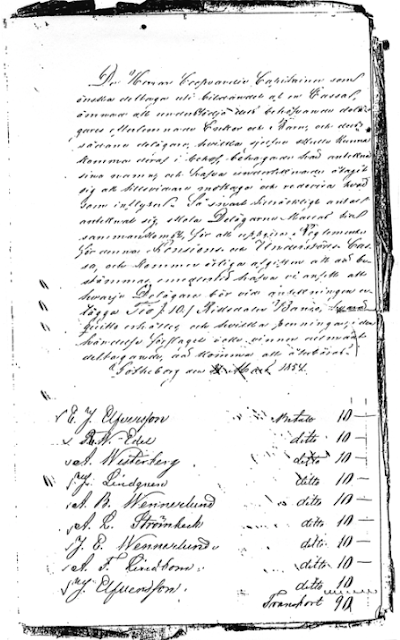 De Herrar Coopvaerdie Capitainer som
önska deltaga uti bildandet af en Cassa,
ämnad att understödja deras behöfvande delä-
gares efterlemnade Enkor och Barn, och äfven
sådana delägare, hvilka sjelfva skulle kunna
komma deraf i behof, behagade här anteckna
sina namn, och hafva undertecknade åtagit
sig att tillsvidare mottaga och redovisa hvad
som inflyter. Så snart tillräckligt antal
antecknat sig, skola Delägarne kallas till
sammankomst, för att uppgöra Reglemente
för denna Pensions och Understöds Cas-
sa, och kommer årliga afgiften att då be-
stämmas, emedlertid hafva vi ansett att
hvarje Delägare bör vid anteckningen er-
lägga Tio /:10:/ Riksdaler Banco,
quitto erhålles, och hvilka penningar, i den
händelse förslaget icke vinner
deltagande, då komma att återbäras.
Götheborg den 1854.
E. J. Elfversson Betalt 10 —
R. W. Edel ditto 10 —
A. Westerberg ditto 10 —
J. Lindgren ditto 10 —
A. B. Wennerlund ditto 10 —
A. L. Strömbeck ditto 10 —
J. E. Wennerlund ditto 10 —
A. F. Lindbom ditto 10 —
J. Elfversson ditto 10 —
Transport 90